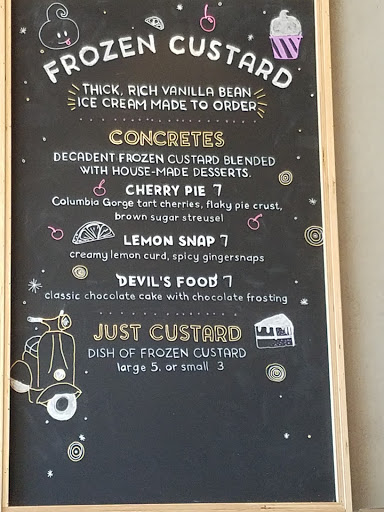 FROZEN CUSTARD
THICK, RICH VANILLA BEAN
ICE CREAM MADE TO ORDER
CONCRETES
DECADENT FROZEN CUSTARD BLENDED
WITH HOUSE-MADE DESSERTS.
CHERRY PIE 7
Columbia Gorge tart cherries, flaky pie crust,
brown sugar streusel
LEMON SNAP 7
creamy lemon curd, spicy gingersnaps
DEVIL'S FOOD 7
classic chocolate cake with chocolate frosting
JUST CUSTARD
DISH OF FROZEN CUSTARD
large 5. or small 3